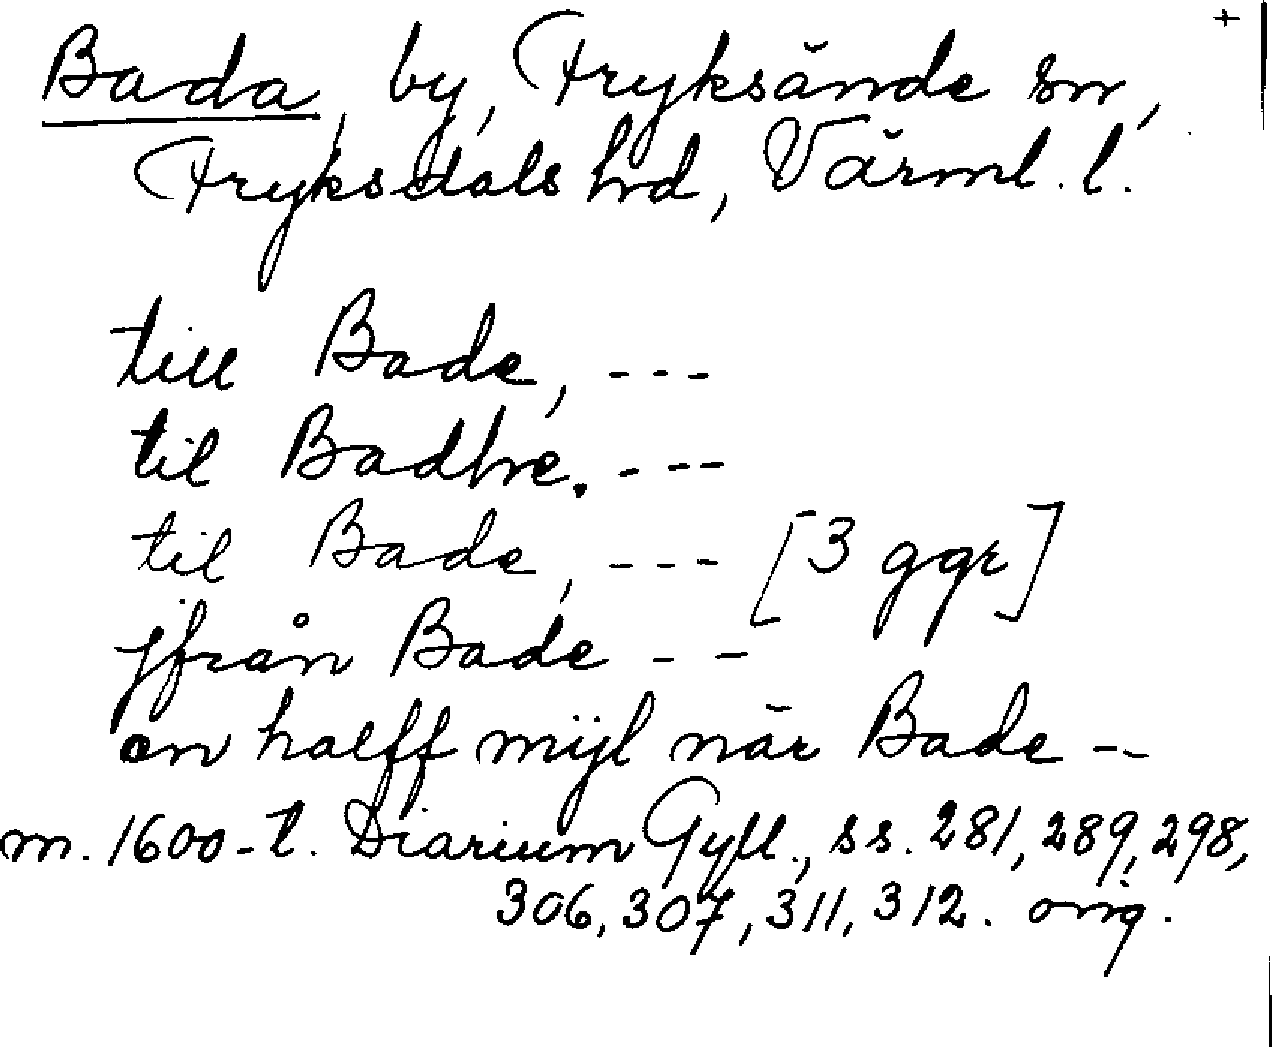 +
Bada, by, Fryksände sn,
Fryksdals hd, Värml. l.
till Bade, ---
til Badhe. ---
til Bade, --- [3 ggr]
ifrån Bade --
en halff mijl när Bade --
m. 1600-t. Diarium Gyll., ss. 281, 289, 298,
306, 307, 311, 312. orig.